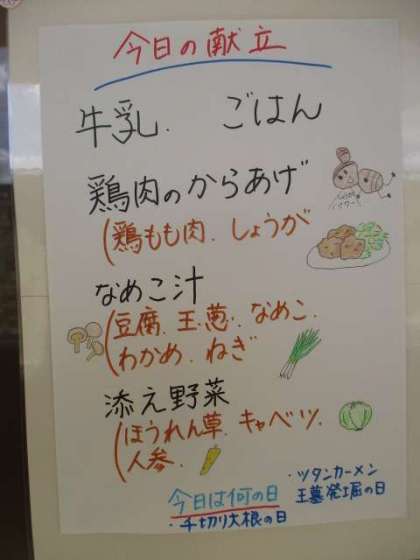 今日の献立
牛乳. ごはん
鶏肉のからあげ
(鶏もも肉. しょうが
なめこ汁
(豆腐. 玉葱. なめこ.
わかめ. ねぎ
添え野菜
(ほうれん草. キャベツ.
人参.
今日は何の日
・千切り大根の日
・ツタンカーメン
王墓発掘の日